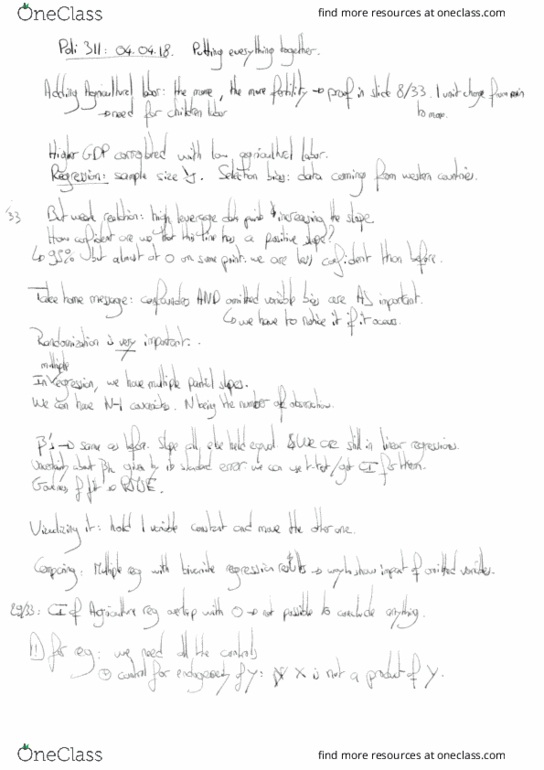 OneClass
find more resources at oneclass.com
Poli 311: 04.04.18. Putting everything together.
Adding Agricultural labor: the more, the more fertility → proof in slide 8/33. 1 unit change from min
→ need for children labor to max.
Higher GDP correlated with low agricultural labor.
Regression: sample size ↘. Selection bias: data coming from western countries.
/33 But weak relation: high leverage data points increasing the slope
How confident are we that this line has a positive slope?
↳ 95% but almost at 0 on some point. we are less confident than before.
Take home message: confounders AND omitted variable bias are AS important.
↳ we have to notice it if it occurs.
Randomization is very important.
multiple
In regression, we have multiple partial slopes.
We can have N-1 covariates. N being the number of observations.
β's → same as before. Slope all else held equal. We are still in linear regressions.
Uncertainty about given by its standard error we can use t-test/get CI for them.
Goodness of fit →
Visualizing it: hold 1 variable constant and move the other one.
Comparing: Multiple reg with bivariate regression results → show impact of omitted variables.
29/33: CI of Agriculture reg overlap with 0 → not possible to conclude anything.
(!) for reg: we need all the controls
control for endogeneity of y: X is not a product of Y.
OneClass
find more resources at oneclass.com